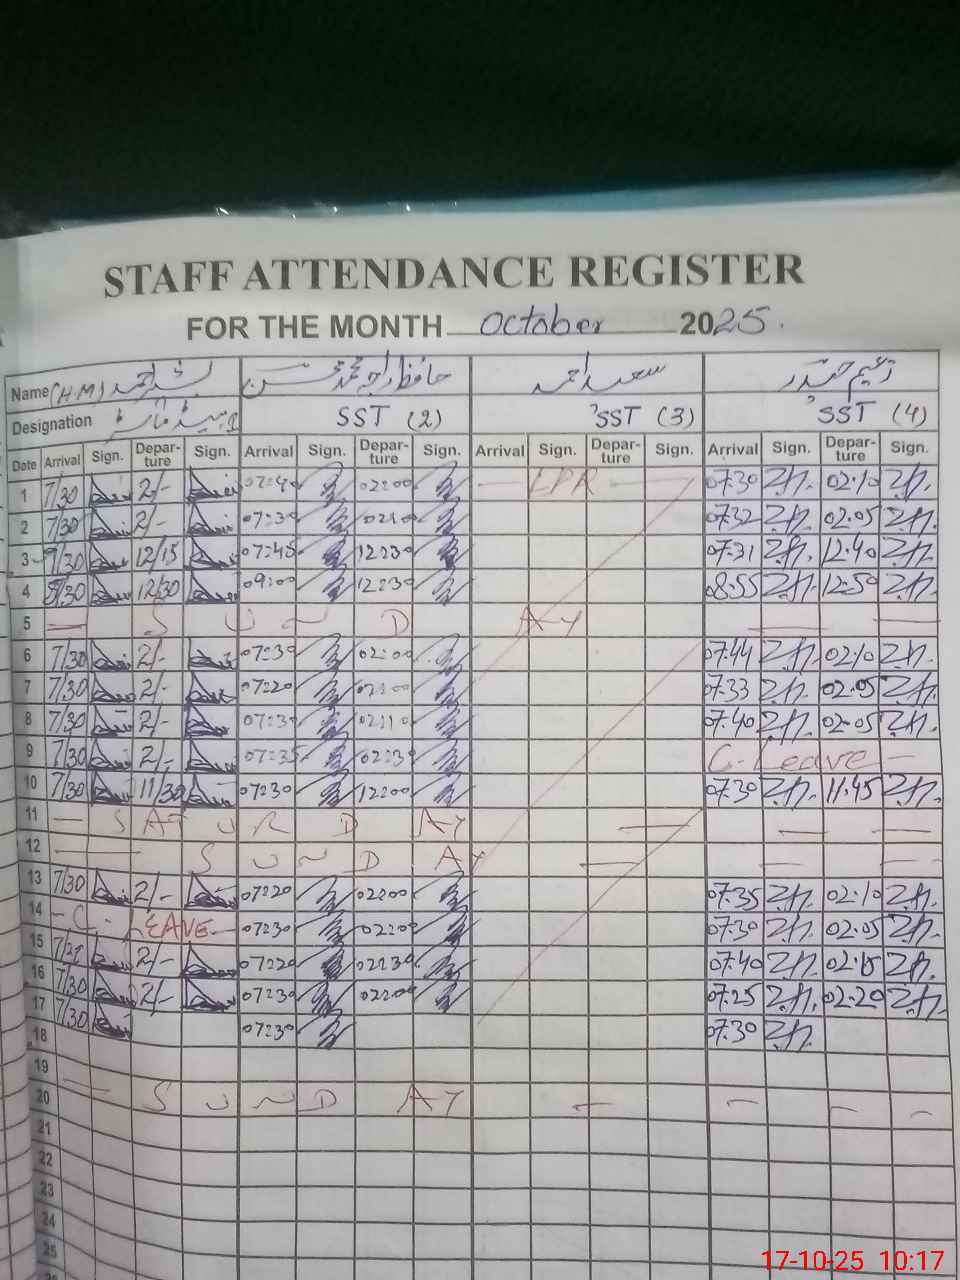 STAFF ATTENDANCE REGISTER
FOR THE MONTH October 2025.
Name (H.M) بشیر احمد حافظ راجہ محمد محسن سعید احمد زعیم حیدر
Designation ہیڈ ماسٹر SST (2) SST (3) SST (4)
Date Arrival Sign. Departure Sign. Arrival Sign. Departure Sign. Arrival Sign. Departure Sign. Arrival Sign. Departure Sign.
1 7/30 2/- 07:40 02:00 LPR 07.30 02.10
2 7/30 2/- 07:30 07.32 02.05
3 9/30 12/15 07:45 12:30 07.31 12.40
4 8/30 12/30 09:00 12:30 08.55 12.50
5 SUNDAY
6 7/30 2/- 07:30 02:00 07.44 02.10
7 7/30 2/- 07:20 02:00 07.33 02.05
8 7/30 2/- 07:30 02:10 07.40 02.05
9 7/30 2/- 07:35 02:30 C-Leave
10 7/30 11/30 07:30 12:00 07.30 11.45
11 SATURDAY
12 SUNDAY
13 7/30 2/- 07:20 02:00 07.35 02.10
14 C-LEAVE 07:30 02:00 07.30 02.05
15 2/- 07:20 02:30 07.40 02.15
16 7/30 2/- 07:30 02:00 07.25 02.20
17 7/30 07:30 07.30
18
19
20 SUNDAY
21
22
23
24
25
17-10-25 10:17